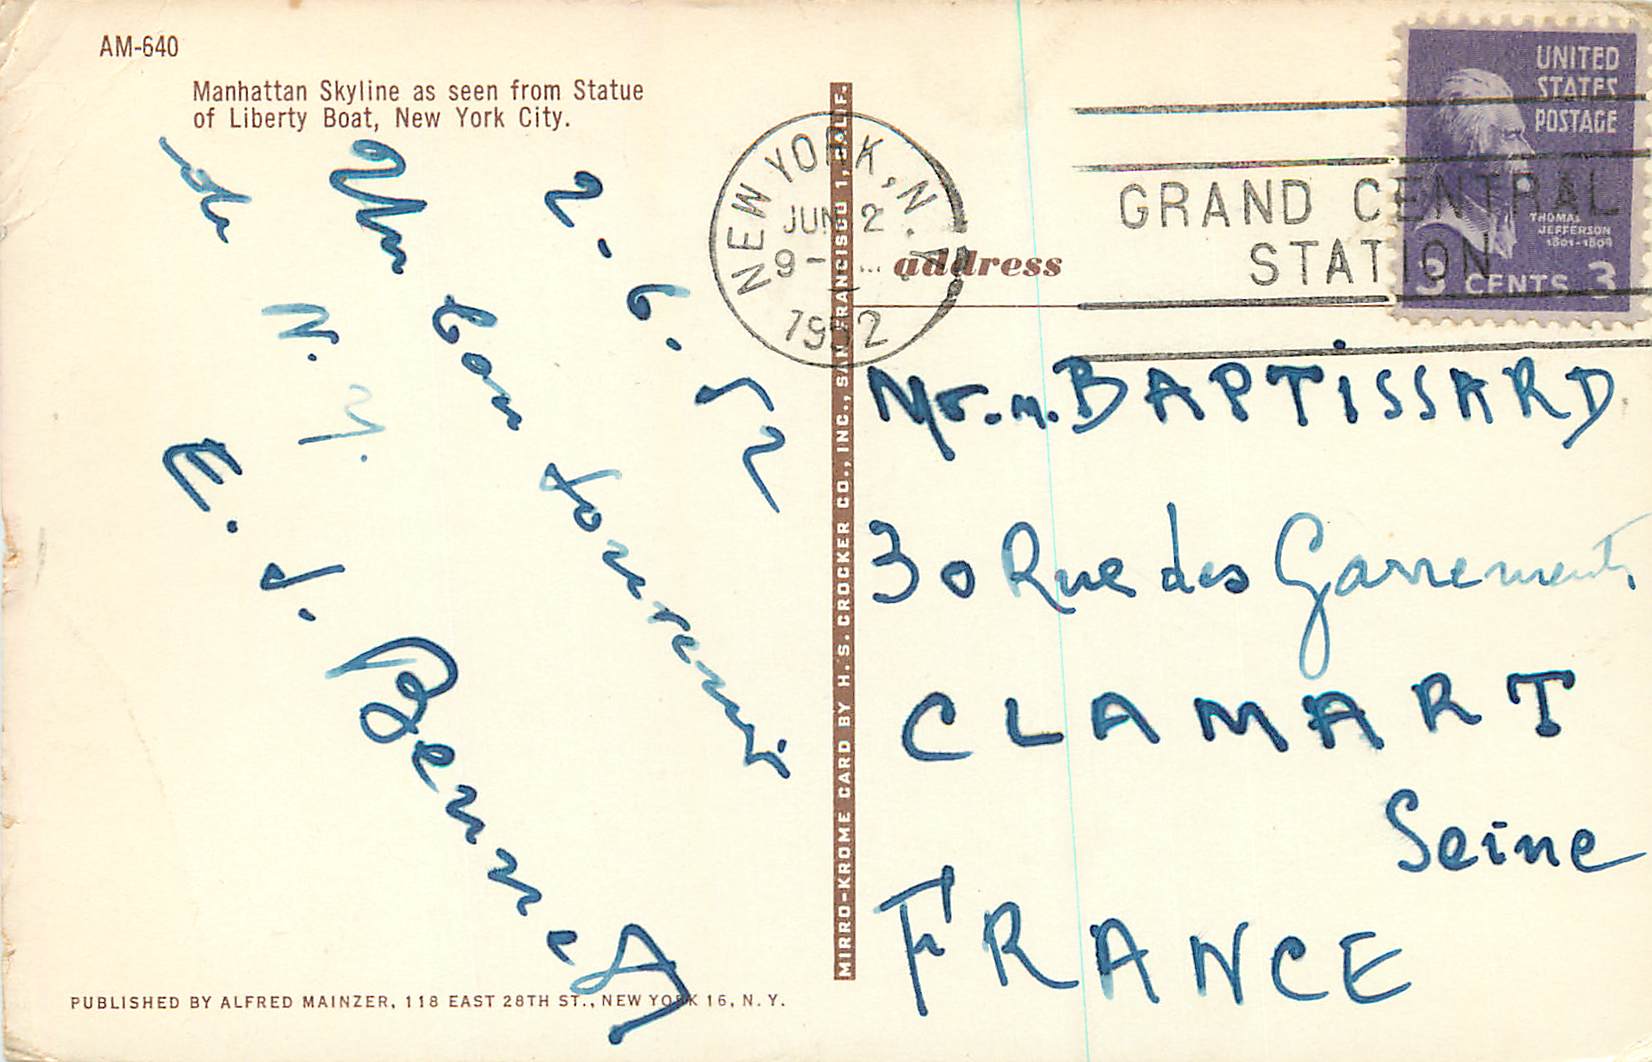 AM-640
Manhattan Skyline as seen from Statue
of Liberty Boat, New York City.
2-6.52
Un bon souvenir
de N.Y.
E. J. Bennet
PUBLISHED BY ALFRED MAINZER, 118 EAST 28TH ST., NEW YORK 16, N. Y.
MIRRO-KROME CARD BY H. S. CROCKER CO., INC., SAN FRANCISCO 1, CALIF.
NEW YORK, N.Y.
JUN 2
9-
1952
GRAND CENTRAL
STATION
UNITED
STATES
POSTAGE
THOMAS
JEFFERSON
1801-1809
3 CENTS 3
address
Mr. M. BAPTISSARD
30 Rue des
CLAMART
Seine
FRANCE